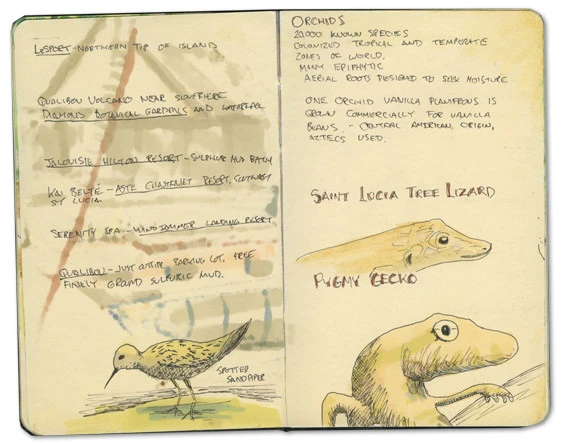 LeSport - Northern Tip of Island
Qualibou Volcano near Soufriere
Diamond Botanical Gardens and waterfall
Jalousie Hilton Resort - Sulphur Mud Bath
Kai Belté - 
Resort, Southwest
St Lucia.
Serenity Spa - Windjammer Landing Resort
Qualibou - Just outside parking lot, free
Finely ground sulfuric mud.
Spotted
Sandpiper
Orchids
20,000 known species
Colonized tropical and temperate
zones of world.
Many epiphytic
Aerial roots designed to seek moisture
One orchid vanilla planifrons is
grown commercially for vanilla
beans. - Central American origin,
Aztecs used.
Saint Lucia Tree Lizard
Pygmy Gecko